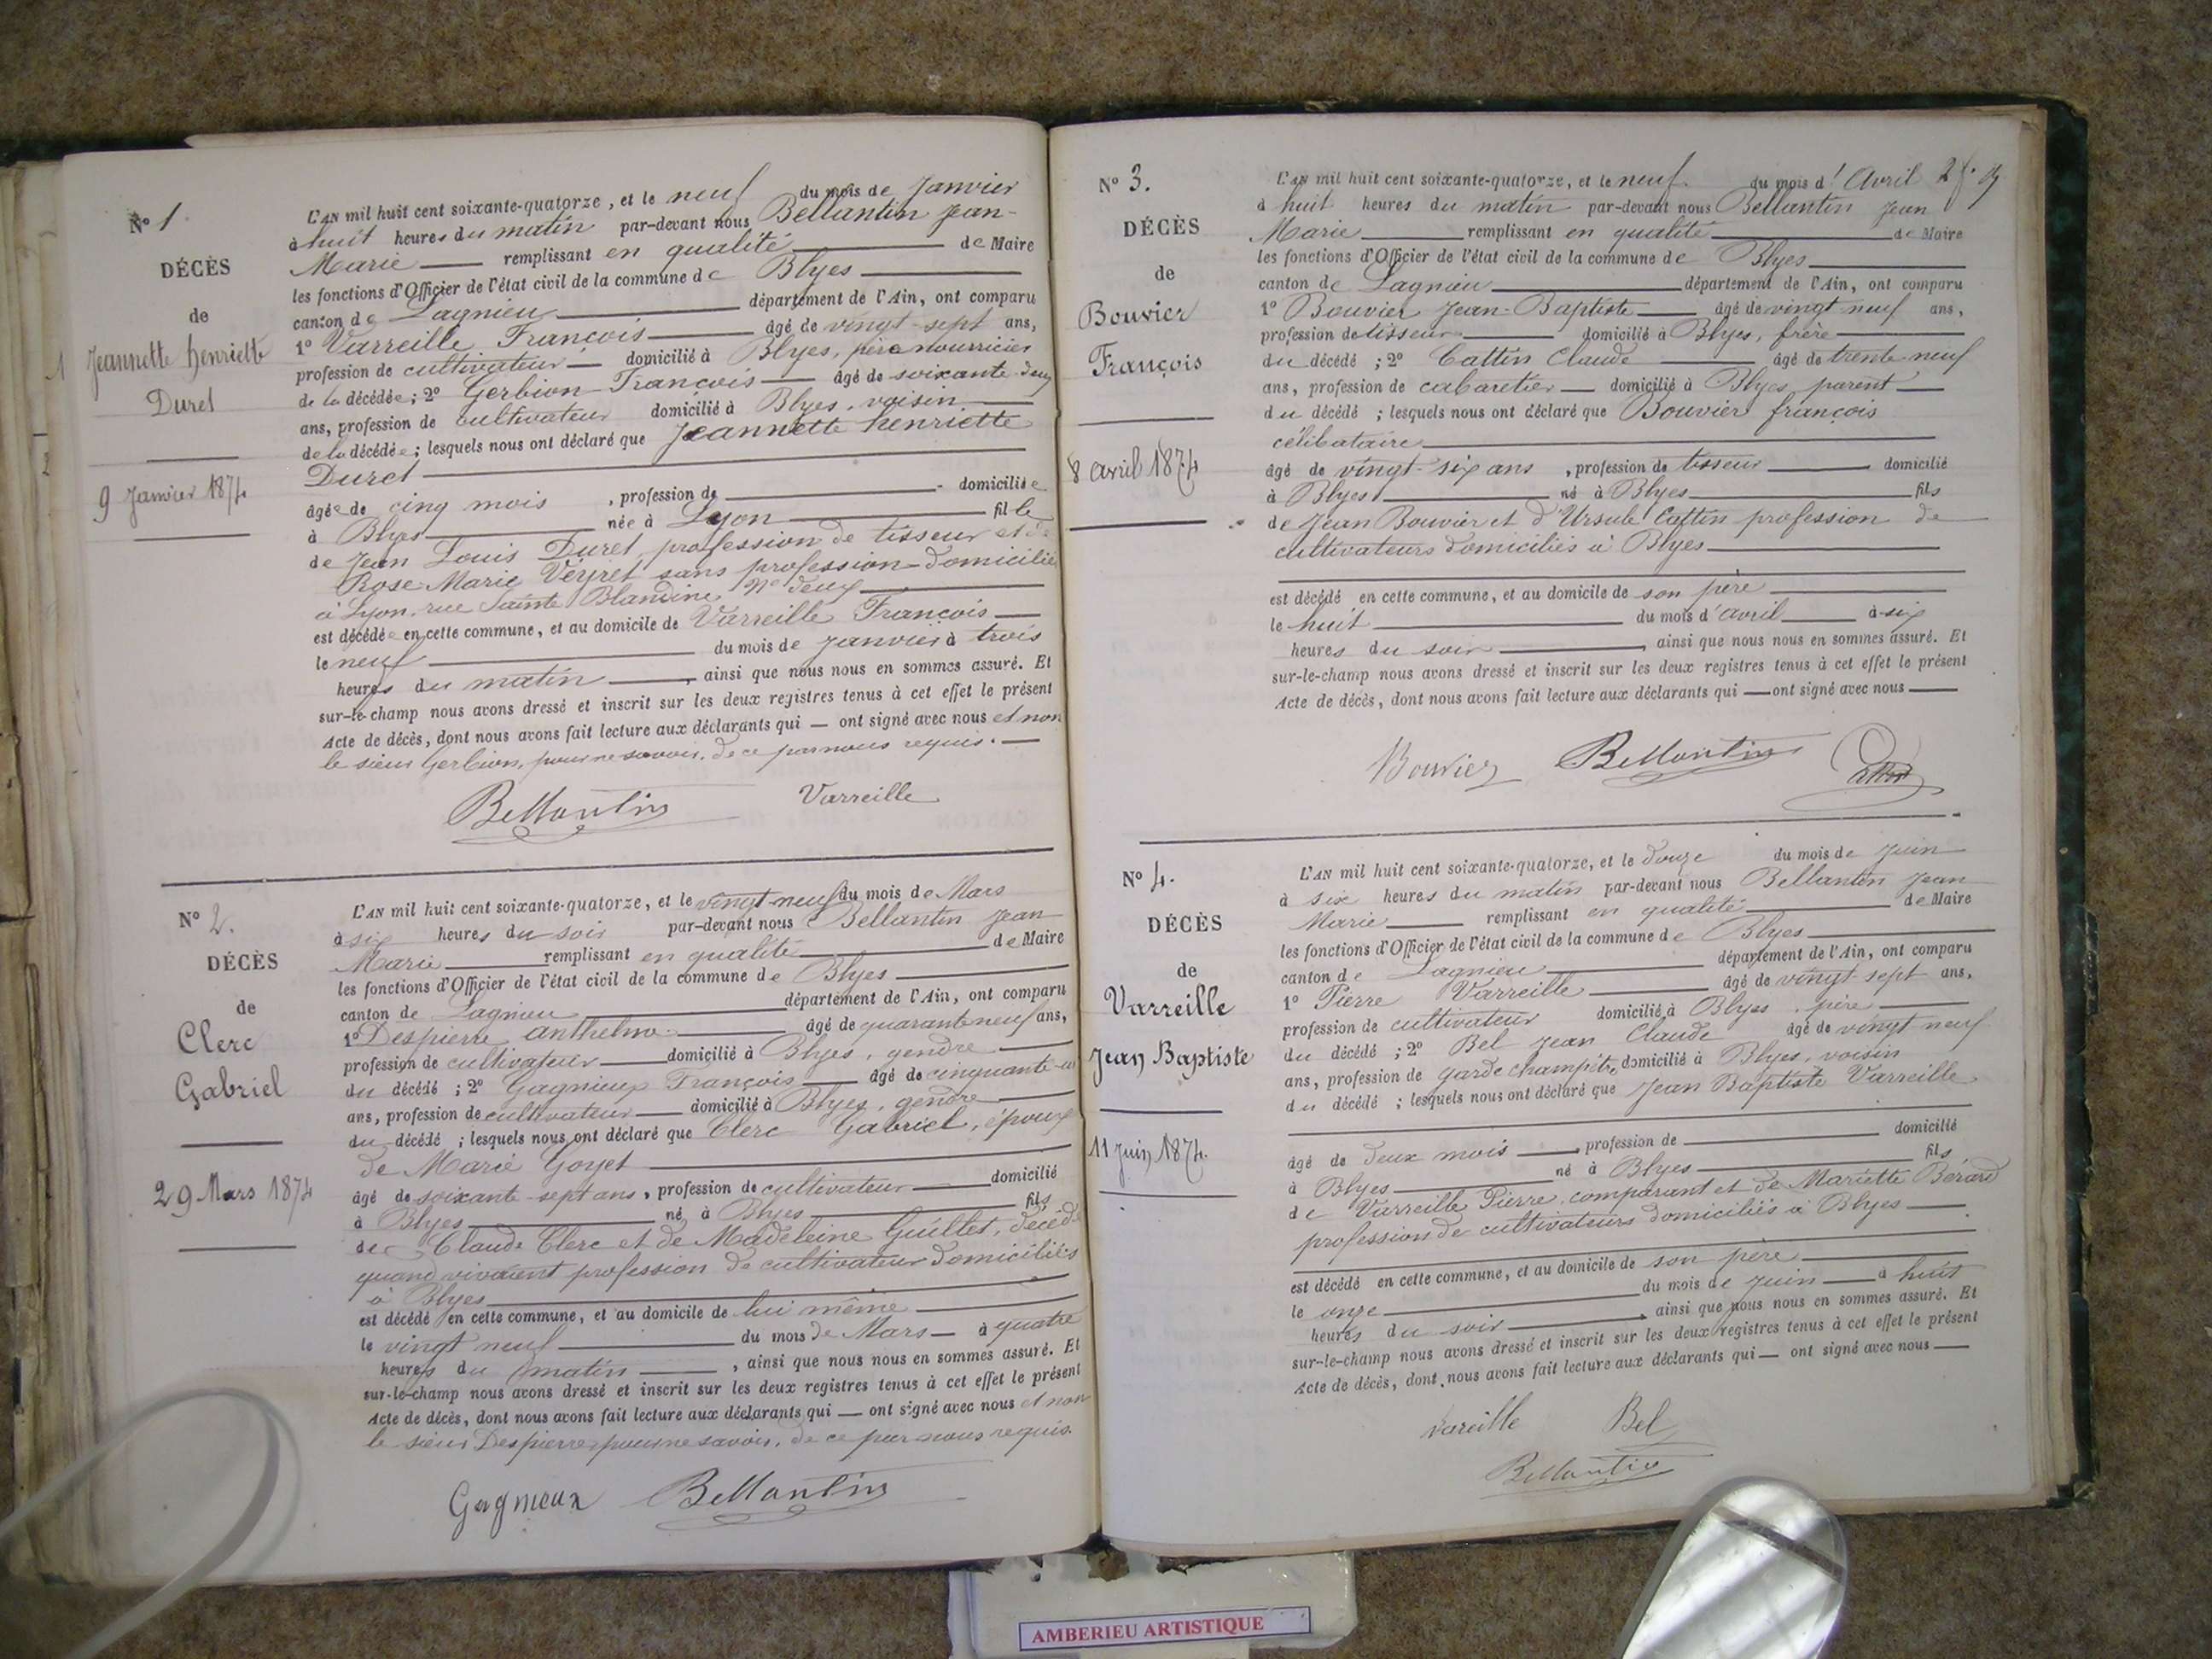 N° 1
DÉCÈS
de
Jeannette henriette
Duret
9 Janvier 1874
L'AN mil huit cent soixante-quatorze, et le neuf du mois de Janvier
à huit heures du matin par-devant nous Bellantin Jean-
Marie remplissant en qualité de Maire
les fonctions d'Officier de l'état civil de la commune de Blyes
canton de Lagnieu département de l'Ain, ont comparu
1° Varreille François âgé de vingt-sept ans,
profession de cultivateur domicilié à Blyes, père nourricier
de la décédée; 2° Gerbion François âgé de soixante-deux
ans, profession de cultivateur domicilié à Blyes, voisin
de la décédée; lesquels nous ont déclaré que Jeannette henriette
Duret
âgée de cinq mois, profession de domiciliée
à Blyes née à Lyon fille
de Jean Louis Duret, profession de tisseur et de
Rose Marie Veyret sans profession domiciliés
à Lyon, rue Sainte Blandine N° deux
est décédée en cette commune, et au domicile de Varreille François
le neuf du mois de Janvier à trois
heures du matin, ainsi que nous nous en sommes assuré. Et
sur-le-champ nous avons dressé et inscrit sur les deux registres tenus à cet effet le présent
Acte de décès, dont nous avons fait lecture aux déclarants qui ont signé avec nous et non
le sieur Gerbion, pour ne savoir, de ce par nous requis.
Bellantin Varreille
N° 2.
DÉCÈS
de
Clerc
Gabriel
29 Mars 1874
L'AN mil huit cent soixante-quatorze, et le vingt-neuf du mois de Mars
à six heures du soir par-devant nous Bellantin Jean
Marie remplissant en qualité de Maire
les fonctions d'Officier de l'état civil de la commune de Blyes
canton de Lagnieu département de l'Ain, ont comparu
1° Despierre anthelme âgé de quarante neuf ans,
profession de cultivateur domicilié à Blyes, gendre
du décédé; 2° Gagnieux François âgé de cinquante-un
ans, profession de cultivateur domicilié à Blyes, gendre
du décédé; lesquels nous ont déclaré que Clerc Gabriel, époux
de Marie Goyet
âgé de soixante-sept ans, profession de cultivateur domicilié
à Blyes né à Blyes fils
de Claude Clerc et de Madeleine Guillet, décédés
quand vivaient profession de cultivateur domiciliés
à Blyes
est décédé en cette commune, et au domicile de lui même
le vingt neuf du mois de Mars à quatre
heures du matin, ainsi que nous nous en sommes assuré. Et
sur-le-champ nous avons dressé et inscrit sur les deux registres tenus à cet effet le présent
Acte de décès, dont nous avons fait lecture aux déclarants qui ont signé avec nous et non
le sieur Despierre pour ne savoir, de ce par nous requis.
Gagnieux Bellantin
N° 3.
DÉCÈS
de
Bouvier
François
8 avril 1874
L'AN mil huit cent soixante-quatorze, et le neuf du mois d'Avril
à huit heures du matin par-devant nous Bellantin Jean
Marie remplissant en qualité de Maire
les fonctions d'Officier de l'état civil de la commune de Blyes
canton de Lagnieu département de l'Ain, ont comparu
1° Bouvier Jean-Baptiste âgé de vingt-neuf ans,
profession de tisseur domicilié à Blyes, frère
du décédé; 2° Cattin Claude âgé de trente-neuf
ans, profession de cabaretier domicilié à Blyes, parent
du décédé; lesquels nous ont déclaré que Bouvier françois
célibataire
âgé de vingt-six ans, profession de tisseur domicilié
à Blyes né à Blyes fils
de Jean Bouvier et d'Ursule Cattin profession de
cultivateurs domiciliés à Blyes
est décédé en cette commune, et au domicile de son père
le huit du mois d'avril à six
heures du soir, ainsi que nous nous en sommes assuré. Et
sur-le-champ nous avons dressé et inscrit sur les deux registres tenus à cet effet le présent
Acte de décès, dont nous avons fait lecture aux déclarants qui ont signé avec nous
Bouvier Bellantin
N° 4.
DÉCÈS
de
Varreille
Jean Baptiste
11 Juin 1874.
L'AN mil huit cent soixante-quatorze, et le douze du mois de Juin
à six heures du matin par-devant nous Bellantin Jean
Marie remplissant en qualité de Maire
les fonctions d'Officier de l'état civil de la commune de Blyes
canton de Lagnieu département de l'Ain, ont comparu
1° Pierre Varreille âgé de vingt-sept ans,
profession de cultivateur domicilié à Blyes, père
du décédé; 2° Bel Jean Claude âgé de vingt neuf
ans, profession de garde champêtre domicilié à Blyes, voisin
du décédé; lesquels nous ont déclaré que Jean Baptiste Varreille
âgé de deux mois, profession de domicilié
à Blyes né à Blyes fils
de Varreille Pierre comparant et de Mariette Bérard
profession de cultivateurs domiciliés à Blyes
est décédé en cette commune, et au domicile de son père
le onze du mois de Juin à huit
heures du soir, ainsi que nous nous en sommes assuré. Et
sur-le-champ nous avons dressé et inscrit sur les deux registres tenus à cet effet le présent
Acte de décès, dont nous avons fait lecture aux déclarants qui ont signé avec nous
Vareille Bel
Bellantin
AMBERIEU ARTISTIQUE